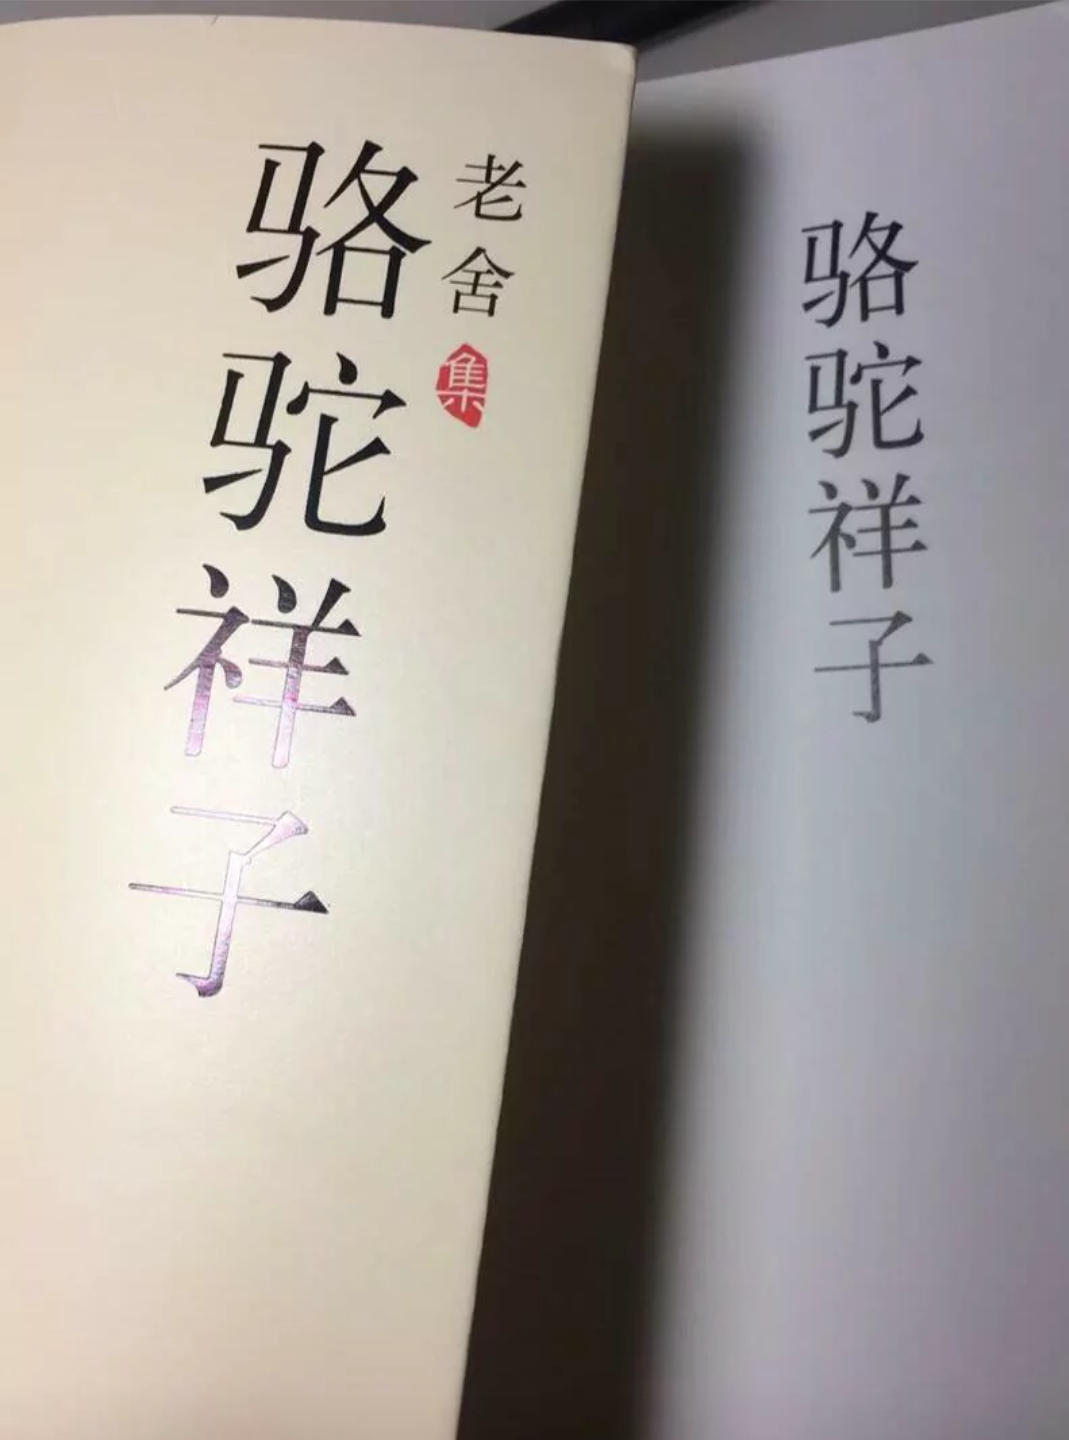 老舍集
骆驼祥子
骆驼祥子